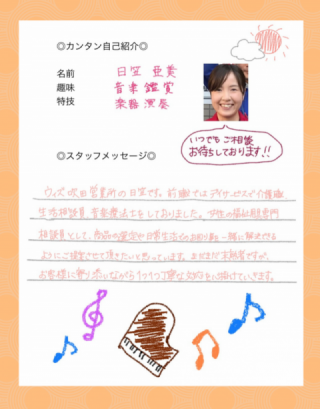 ◎カンタン自己紹介◎
名前 日笠 亜美
趣味 音楽鑑賞
特技 楽器演奏
いつでもご相談
お待ちしております!!
◎スタッフメッセージ◎
ウィズ吹田営業所の日笠です。前職ではデイサービスで介護職
生活相談員、音楽療法士をしておりました。福祉用具専門
相談員として、商品の選定や日常生活でのお困り事を一緒に解決できる
ようにご提案させて頂きたいと思っています。まだまだ未熟者ですが、
お客様に寄り添いながら1つ1つ丁寧な対応を心掛けていきます。